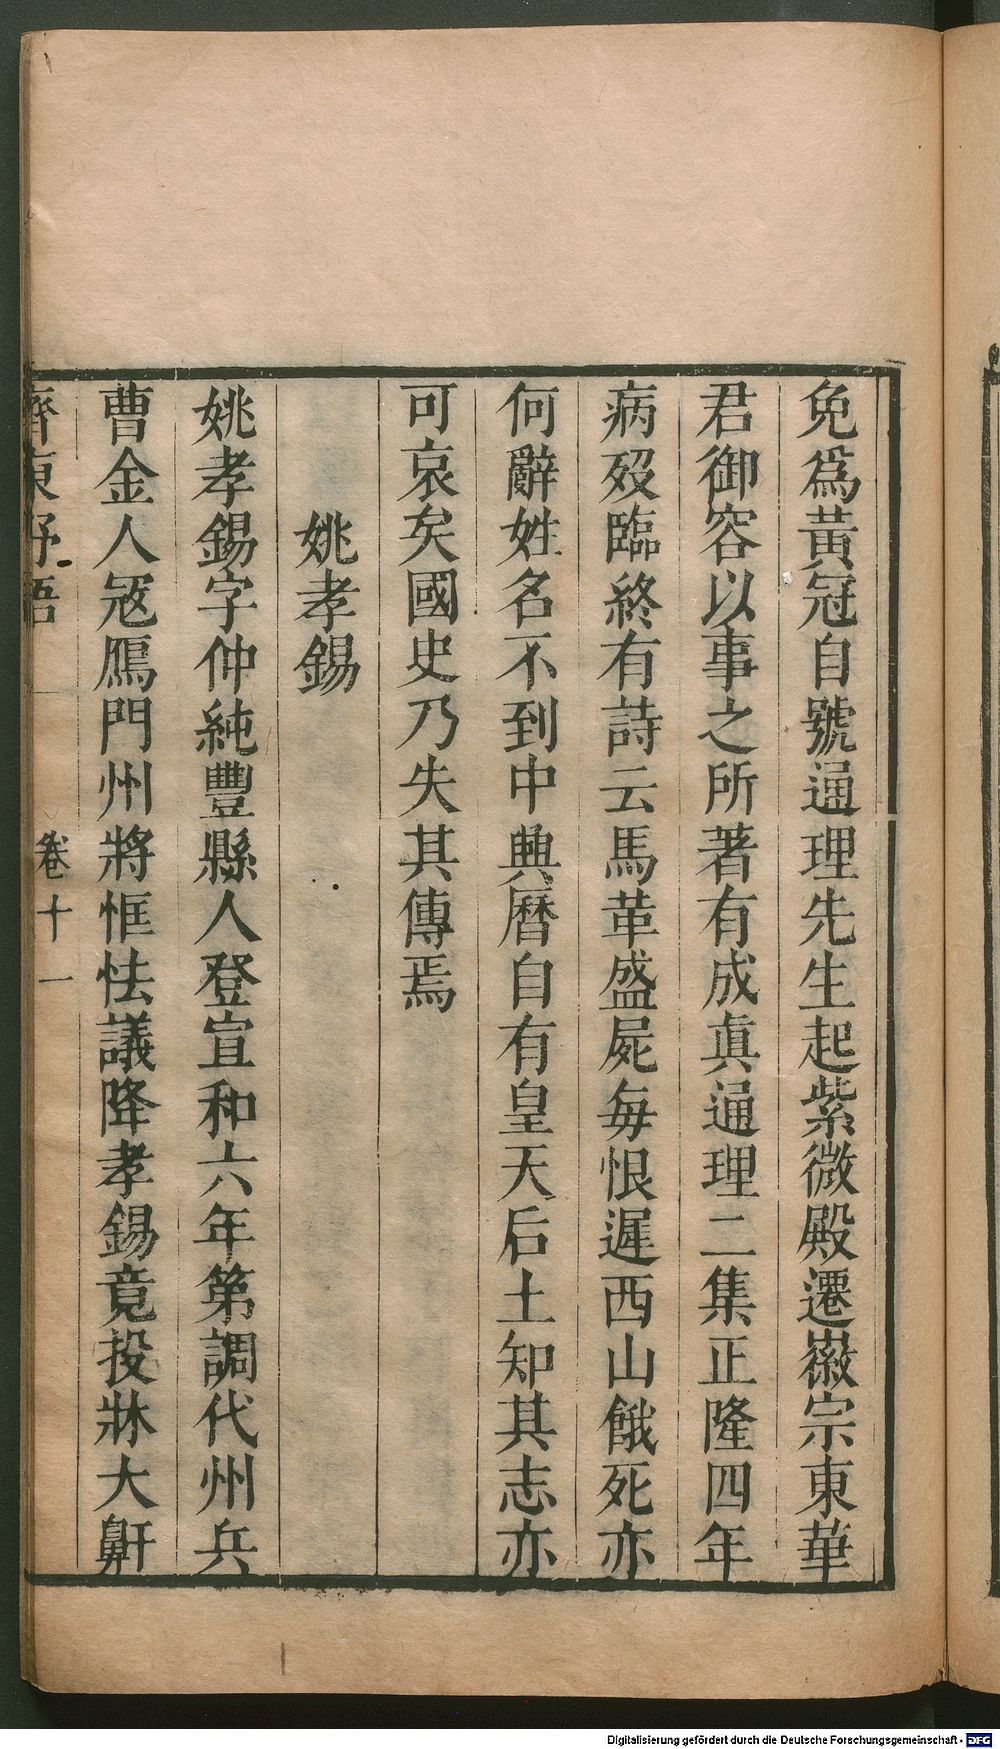 免爲黃冠自號通理先生起紫微殿遷徽宗東華
君御容以事之所著有成眞通理二集正隆四年
病歿臨終有詩云馬革盛屍每恨遲西山餓死亦
何辭姓名不到中興曆自有皇天后土知其志亦
可哀矣國史乃失其傳焉
姚孝錫
姚孝錫字仲純豐縣人登宣和六年第調代州兵
曹金人宼鴈門州將恇怯議降孝錫竟投牀大鼾
齊東野語 卷十一
Digitalisierung gefördert durch die Deutsche Forschungsgemeinschaft - DFG